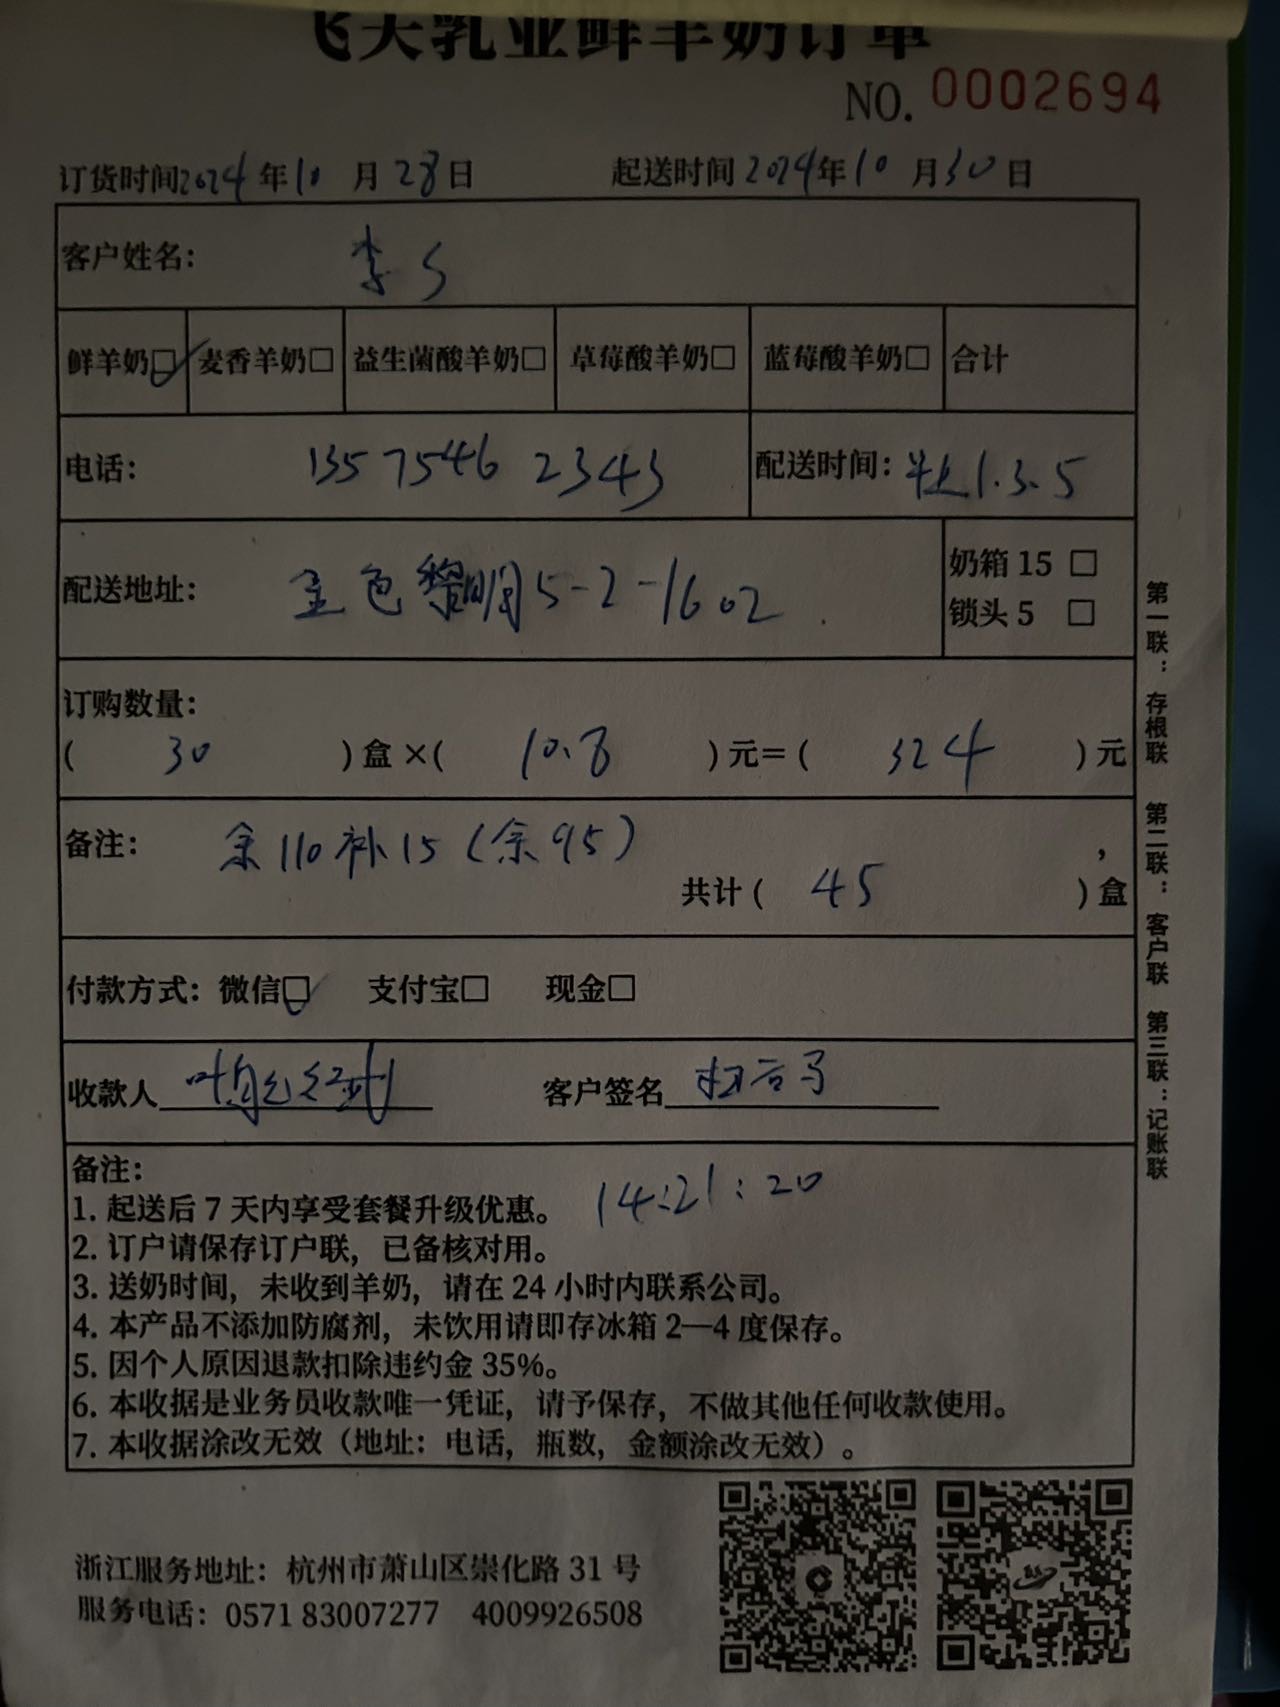 飞天乳业鲜羊奶订单
NO. 0002694
订货时间2024年10月28日 起送时间2024年10月30日
客户姓名: 李
鲜羊奶☑ 麦香羊奶□ 益生菌酸羊奶□ 草莓酸羊奶□ 蓝莓酸羊奶□ 合计
电话: 135 7546 2343 配送时间: 1.3.5
配送地址: 金色黎明5-2-1602
奶箱 15 □
锁头 5 □
订购数量:
( 30 )盒×( 10.8 )元=( 324 )元
备注: 余110补15(余95)
共计( 45 )盒
付款方式: 微信☑ 支付宝□ 现金□
收款人 客户签名
备注:
14:21:20
1. 起送后 7 天内享受套餐升级优惠。
2. 订户请保存订户联，已备核对用。
3. 送奶时间，未收到羊奶，请在 24 小时内联系公司。
4. 本产品不添加防腐剂，未饮用请即存冰箱 2—4 度保存。
5. 因个人原因退款扣除违约金 35%。
6. 本收据是业务员收款唯一凭证，请予保存，不做其他任何收款使用。
7. 本收据涂改无效（地址：电话，瓶数，金额涂改无效）。
第一联：存根联 第二联：客户联 第三联：记账联
浙江服务地址：杭州市萧山区崇化路 31 号
服务电话：0571 83007277 4009926508